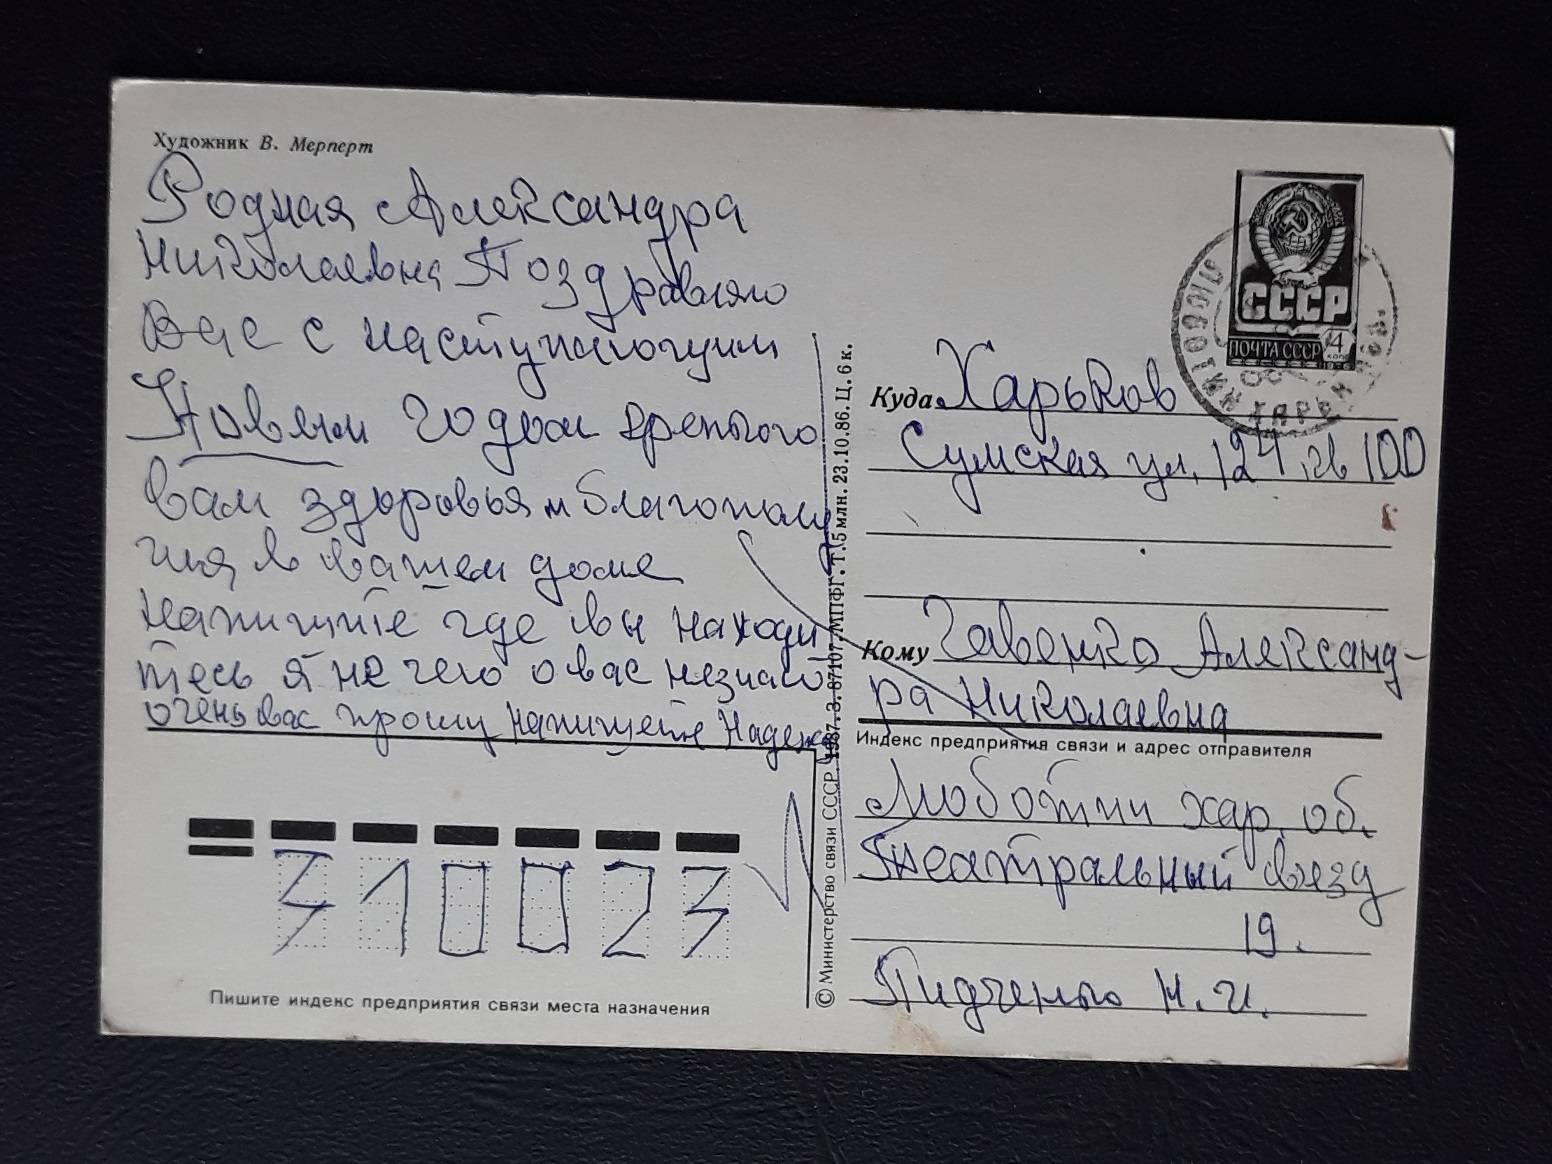 Художник В. Мерперт
Родная Александра
Николаевна Поздравляю
Вас с наступающим
Новым годом крепкого
вам здоровья и благополу
чия в вашем доме
напишите где вы находи
тесь я не чего о вас незнаю
очень вас прошу напишете Надежда
310023
Пишите индекс предприятия связи места назначения
© Министерство связи СССР. 1987. З. 87107. МПФГ. Т. 5 млн. 23.10.86. Ц. 6 к.
СССР
ПОЧТА СССР 4
коп
1976
Куда Харьков
Сумская ул. 124 кв 100
Кому Гавенко Александ-
ра Николаевна
Индекс предприятия связи и адрес отправителя
Люботин хар. об.
Театральный вьезд
19.
Пидченко Н. И.